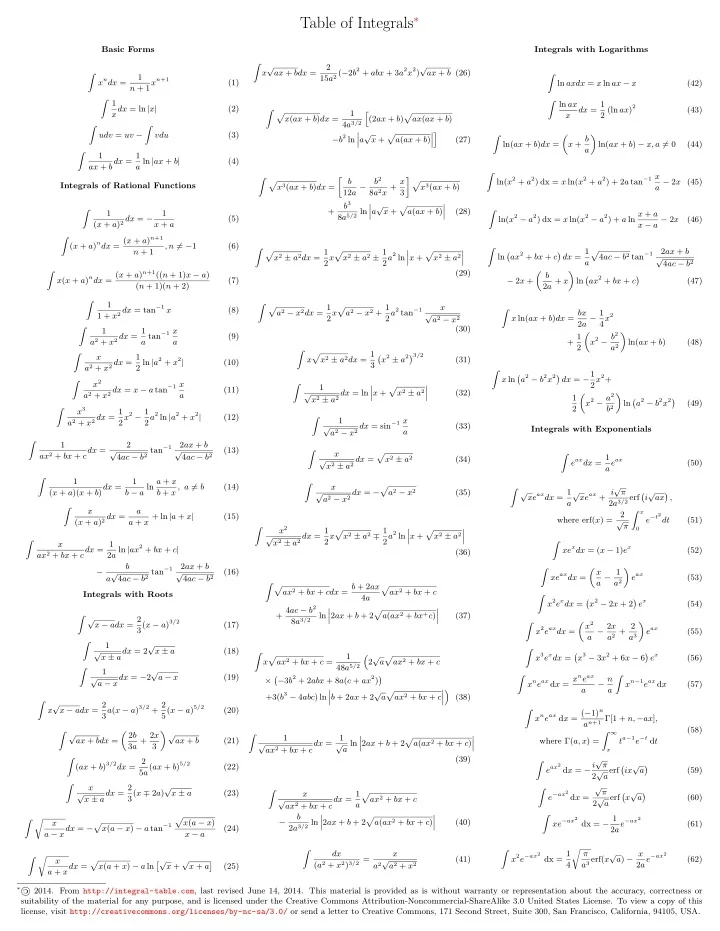 Table of Integrals*
Basic Forms
∫ xⁿdx = 1/(n+1) xⁿ⁺¹ (1)
∫ 1/x dx = ln |x| (2)
∫ udv = uv − ∫ vdu (3)
∫ 1/(ax + b) dx = 1/a ln |ax + b| (4)
Integrals of Rational Functions
∫ 1/(x + a)² dx = − 1/(x + a) (5)
∫ (x + a)ⁿdx = (x + a)ⁿ⁺¹/(n + 1), n ≠ −1 (6)
∫ x(x + a)ⁿdx = (x + a)ⁿ⁺¹((n + 1)x − a)/((n + 1)(n + 2)) (7)
∫ 1/(1 + x²) dx = tan⁻¹ x (8)
∫ 1/(a² + x²) dx = 1/a tan⁻¹ x/a (9)
∫ x/(a² + x²) dx = 1/2 ln |a² + x²| (10)
∫ x²/(a² + x²) dx = x − a tan⁻¹ x/a (11)
∫ x³/(a² + x²) dx = 1/2 x² − 1/2 a² ln |a² + x²| (12)
∫ 1/(ax² + bx + c) dx = 2/√(4ac − b²) tan⁻¹ (2ax + b)/√(4ac − b²) (13)
∫ 1/((x + a)(x + b)) dx = 1/(b − a) ln (a + x)/(b + x), a ≠ b (14)
∫ x/(x + a)² dx = a/(a + x) + ln |a + x| (15)
∫ x/(ax² + bx + c) dx = 1/(2a) ln |ax² + bx + c|
− b/(a√(4ac − b²)) tan⁻¹ (2ax + b)/√(4ac − b²) (16)
Integrals with Roots
∫ √(x − a)dx = 2/3 (x − a)^(3/2) (17)
∫ 1/√(x ± a) dx = 2√(x ± a) (18)
∫ 1/√(a − x) dx = −2√(a − x) (19)
∫ x√(x − a)dx = 2/3 a(x − a)^(3/2) + 2/5 (x − a)^(5/2) (20)
∫ √(ax + b)dx = (2b/3a + 2x/3) √(ax + b) (21)
∫ (ax + b)^(3/2)dx = 2/(5a) (ax + b)^(5/2) (22)
∫ x/√(x ± a) dx = 2/3 (x ∓ 2a)√(x ± a) (23)
∫ √(x/(a − x)) dx = −√(x(a − x)) − a tan⁻¹ √(x(a − x))/(x − a) (24)
∫ √(x/(a + x)) dx = √(x(a + x)) − a ln [√x + √(x + a)] (25)
∫ x√(ax + b)dx = 2/(15a²) (−2b² + abx + 3a²x²)√(ax + b) (26)
∫ √(x(ax + b))dx = 1/(4a^(3/2)) [(2ax + b)√(ax(ax + b))
−b² ln |a√x + √(a(ax + b))|] (27)
∫ √(x³(ax + b))dx = [b/(12a) − b²/(8a²x) + x/3] √(x³(ax + b))
+ b³/(8a^(5/2)) ln |a√x + √(a(ax + b))| (28)
∫ √(x² ± a²)dx = 1/2 x√(x² ± a²) ± 1/2 a² ln |x + √(x² ± a²)|
(29)
∫ √(a² − x²)dx = 1/2 x√(a² − x²) + 1/2 a² tan⁻¹ x/√(a² − x²)
(30)
∫ x√(x² ± a²)dx = 1/3 (x² ± a²)^(3/2) (31)
∫ 1/√(x² ± a²) dx = ln |x + √(x² ± a²)| (32)
∫ 1/√(a² − x²) dx = sin⁻¹ x/a (33)
∫ x/√(x² ± a²) dx = √(x² ± a²) (34)
∫ x/√(a² − x²) dx = −√(a² − x²) (35)
∫ x²/√(x² ± a²) dx = 1/2 x√(x² ± a²) ∓ 1/2 a² ln |x + √(x² ± a²)|
(36)
∫ √(ax² + bx + c)dx = (b + 2ax)/(4a) √(ax² + bx + c)
+ (4ac − b²)/(8a^(3/2)) ln |2ax + b + 2√(a(ax² + bx⁺c))| (37)
∫ x√(ax² + bx + c) = 1/(48a^(5/2)) (2√a√(ax² + bx + c)
× (−3b² + 2abx + 8a(c + ax²))
+3(b³ − 4abc) ln |b + 2ax + 2√a√(ax² + bx + c)|) (38)
∫ 1/√(ax² + bx + c) dx = 1/√a ln |2ax + b + 2√(a(ax² + bx + c))|
(39)
∫ x/√(ax² + bx + c) dx = 1/a √(ax² + bx + c)
− b/(2a^(3/2)) ln |2ax + b + 2√(a(ax² + bx + c))| (40)
∫ dx/(a² + x²)^(3/2) = x/(a²√(a² + x²)) (41)
Integrals with Logarithms
∫ ln axdx = x ln ax − x (42)
∫ ln ax/x dx = 1/2 (ln ax)² (43)
∫ ln(ax + b)dx = (x + b/a) ln(ax + b) − x, a ≠ 0 (44)
∫ ln(x² + a²) dx = x ln(x² + a²) + 2a tan⁻¹ x/a − 2x (45)
∫ ln(x² − a²) dx = x ln(x² − a²) + a ln (x + a)/(x − a) − 2x (46)
∫ ln (ax² + bx + c) dx = 1/a √(4ac − b²) tan⁻¹ (2ax + b)/√(4ac − b²)
− 2x + (b/2a + x) ln (ax² + bx + c) (47)
∫ x ln(ax + b)dx = bx/2a − 1/4 x²
+ 1/2 (x² − b²/a²) ln(ax + b) (48)
∫ x ln (a² − b²x²) dx = −1/2 x²+
1/2 (x² − a²/b²) ln (a² − b²x²) (49)
Integrals with Exponentials
∫ e^(ax)dx = 1/a e^(ax) (50)
∫ √x e^(ax)dx = 1/a √x e^(ax) + i√π/(2a^(3/2)) erf (i√(ax)),
where erf(x) = 2/√π ∫₀ˣ e^(−t²)dt (51)
∫ xeˣdx = (x − 1)eˣ (52)
∫ xe^(ax)dx = (x/a − 1/a²) e^(ax) (53)
∫ x²eˣdx = (x² − 2x + 2) eˣ (54)
∫ x²e^(ax)dx = (x²/a − 2x/a² + 2/a³) e^(ax) (55)
∫ x³eˣdx = (x³ − 3x² + 6x − 6) eˣ (56)
∫ xⁿe^(ax) dx = xⁿe^(ax)/a − n/a ∫ xⁿ⁻¹e^(ax)dx (57)
∫ xⁿe^(ax) dx = (−1)ⁿ/aⁿ⁺¹ Γ[1 + n, −ax],
where Γ(a, x) = ∫ₓ^∞ t^(a−1)e^(−t) dt (58)
∫ e^(ax²) dx = − i√π/(2√a) erf (ix√a) (59)
∫ e^(−ax²) dx = √π/(2√a) erf (x√a) (60)
∫ xe^(−ax²) dx = − 1/(2a) e^(−ax²) (61)
∫ x²e^(−ax²) dx = 1/4 √(π/a³) erf(x√a) − x/(2a) e^(−ax²) (62)
* 2014. From http://integral-table.com, last revised June 14, 2014. This material is provided as is without warranty or representation about the accuracy, correctness or
suitability of the material for any purpose, and is licensed under the Creative Commons Attribution-Noncommercial-ShareAlike 3.0 United States License. To view a copy of this
license, visit http://creativecommons.org/licenses/by-nc-sa/3.0/ or send a letter to Creative Commons, 171 Second Street, Suite 300, San Francisco, California, 94105, USA.